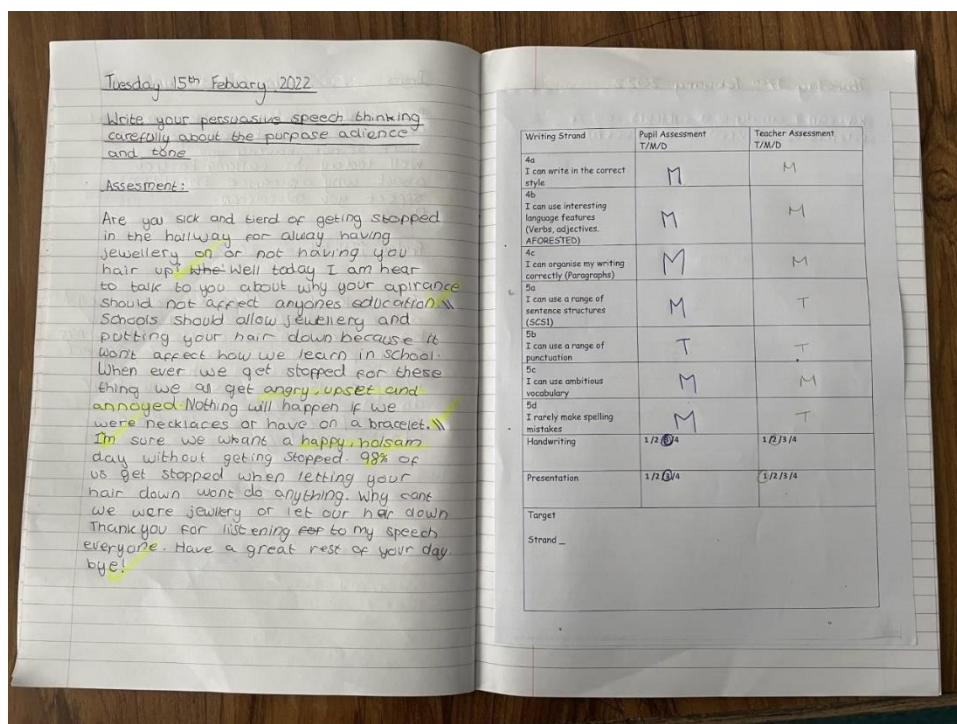 Tuesday 15th Febuary 2022
Write your persuasive speech thinking
carefully about the purpose adience
and tone
Assesment:
Are you sick and tierd of geting stopped
in the hallway for alway having
jewellery on or not having you
hair up? Whe Well today I am hear
to talk to you about why your apirance
should not affect anyones education. \\
Schools should allow jewellery and
putting your hair down because it
won't affect how we learn in school.
When ever we get stopped for these
thing we all get angry, upset and
annoyed. Nothing will happen if we
were necklaces or have on a bracelet. \\
I'm sure we whant a happy, holsam
day without geting stopped. 98% of
us get stopped when letting your
hair down wont do anything. Why cant
we were jewllery or let our hair down
Thank you for listening for to my speech
everyone. Have a great rest of your day.
bye!
Writing Strand Pupil Assessment Teacher Assessment
T/M/D T/M/D
4a
I can write in the correct
style M M
4b
I can use interesting
language features
(Verbs, adjectives.
AFORESTED) M M
4c
I can organise my writing
correctly (Paragraphs) M M
5a
I can use a range of
sentence structures
(SCS1) M T
5b
I can use a range of
punctuation T T
5c
I can use ambitious
vocabulary M M
5d
I rarely make spelling
mistakes M T
Handwriting 1/2/3/4 1/2/3/4
Presentation 1/2/3/4 1/2/3/4
Target
Strand _